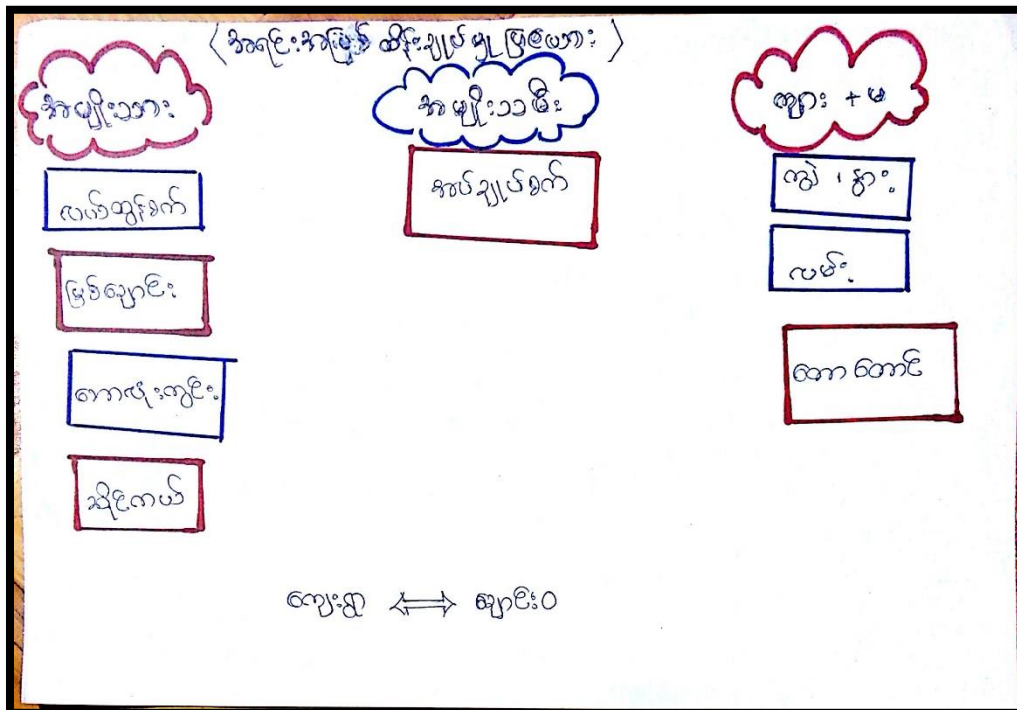 (အရင်းအမြစ် ထိန်းချုပ်မှု ပြဇယား)
အမျိုးသား
လယ်ထွန်စက်
မြစ်ချောင်း
ဘောလုံးကွင်း
ဆိုင်ကယ်
အမျိုးသမီး
အပ်ချုပ်စက်
ကျား + မ
ကျွဲ ၊ နွား
လမ်း
တောတောင်
ကျေးရွာ ⟺ ချောင်းဝ